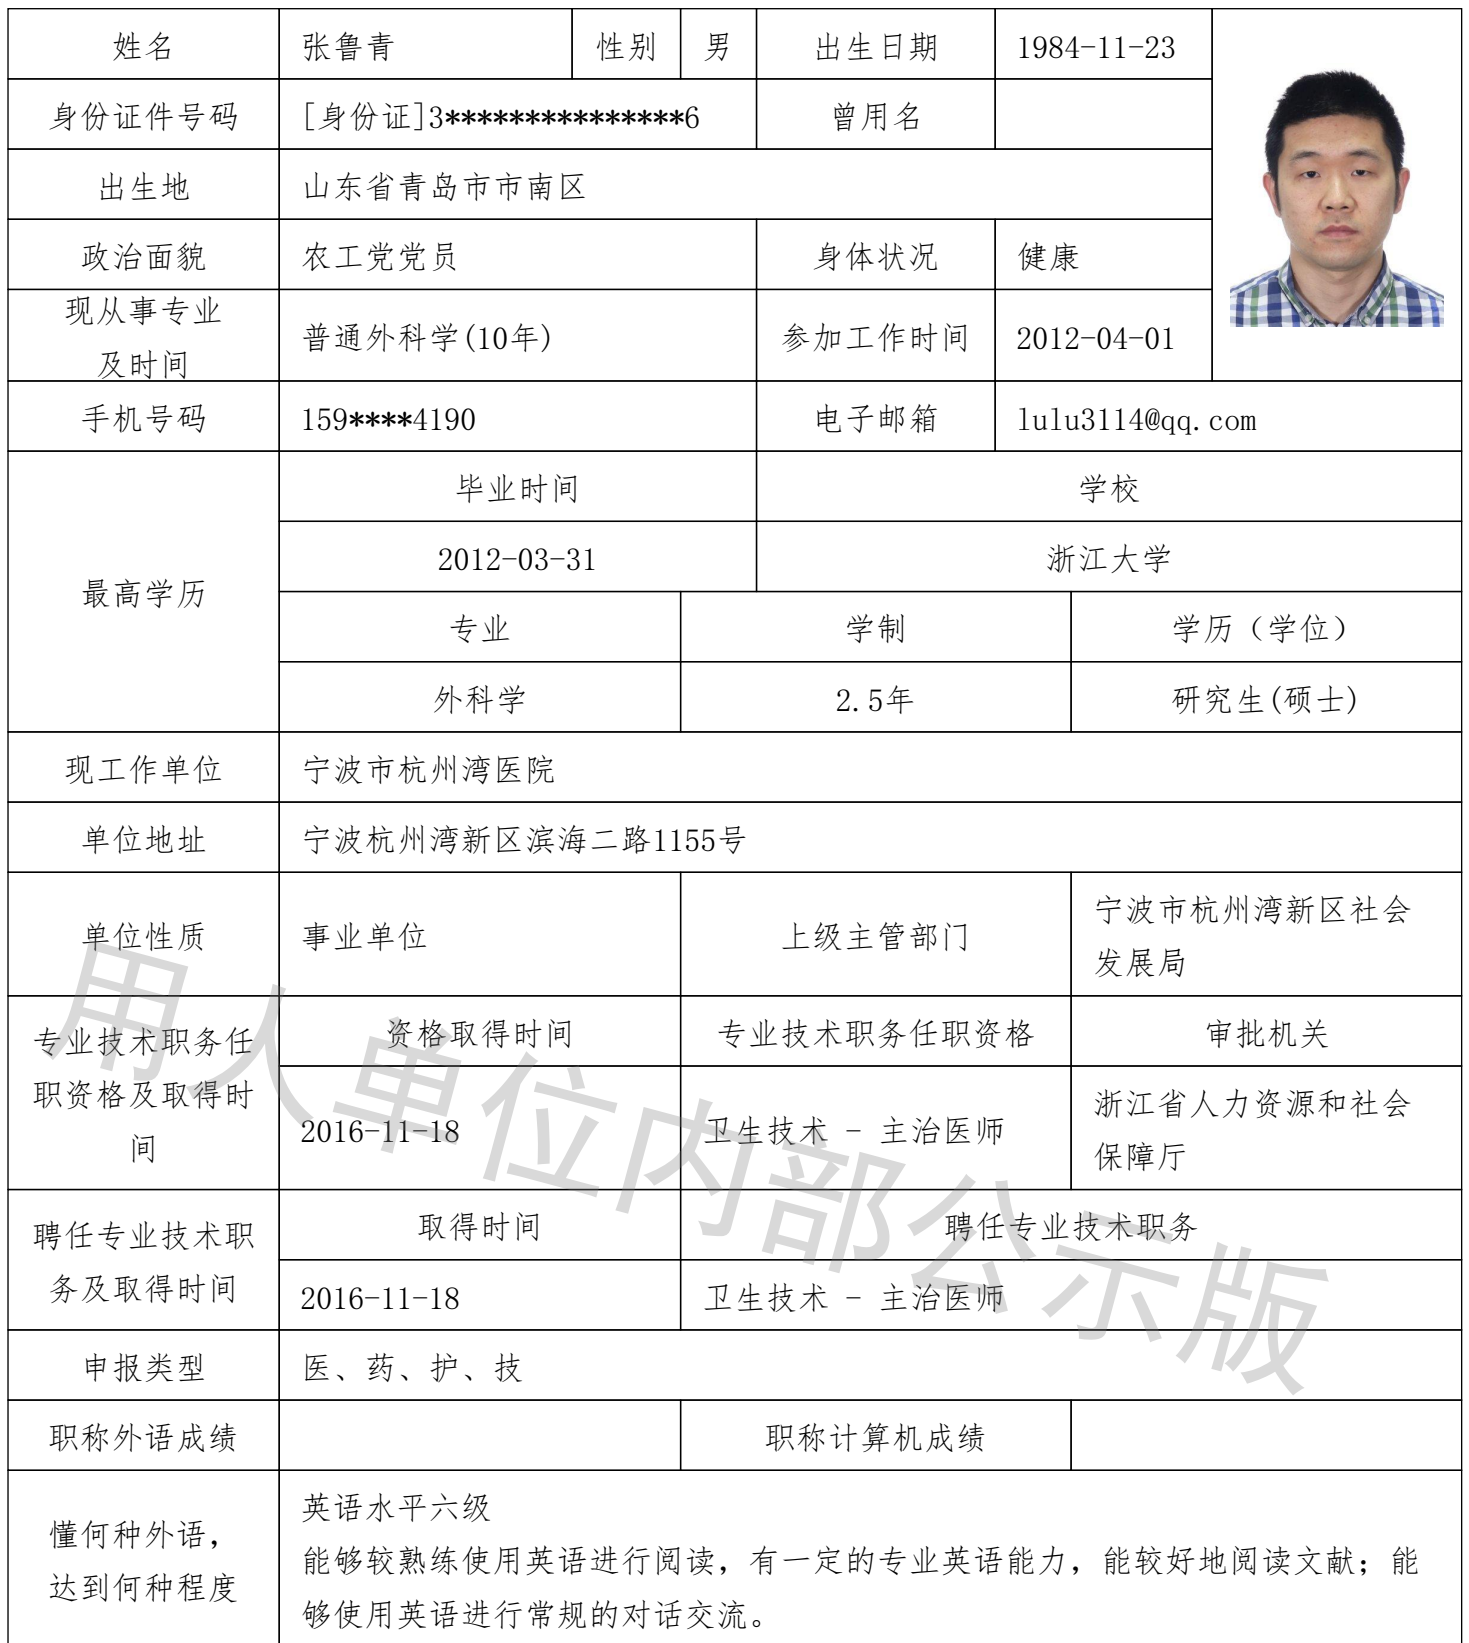 姓名 张鲁青 性别 男 出生日期 1984-11-23
身份证件号码 [身份证]3***************6 曾用名
出生地 山东省青岛市市南区
政治面貌 农工党党员 身体状况 健康
现从事专业
及时间
普通外科学(10年) 参加工作时间 2012-04-01
手机号码 159****4190 电子邮箱 lulu3114@qq.com
最高学历
毕业时间 学校
2012-03-31 浙江大学
专业 学制 学历（学位）
外科学 2.5年 研究生(硕士)
现工作单位 宁波市杭州湾医院
单位地址 宁波杭州湾新区滨海二路1155号
单位性质 事业单位 上级主管部门
宁波市杭州湾新区社会
发展局
专业技术职务任
职资格及取得时
间
资格取得时间 专业技术职务任职资格 审批机关
2016-11-18 卫生技术 - 主治医师
浙江省人力资源和社会
保障厅
聘任专业技术职
务及取得时间
取得时间 聘任专业技术职务
2016-11-18 卫生技术 - 主治医师
申报类型 医、药、护、技
职称外语成绩 职称计算机成绩
懂何种外语，
达到何种程度
英语水平六级
能够较熟练使用英语进行阅读，有一定的专业英语能力，能较好地阅读文献；能
够使用英语进行常规的对话交流。
用人单位内部公示版